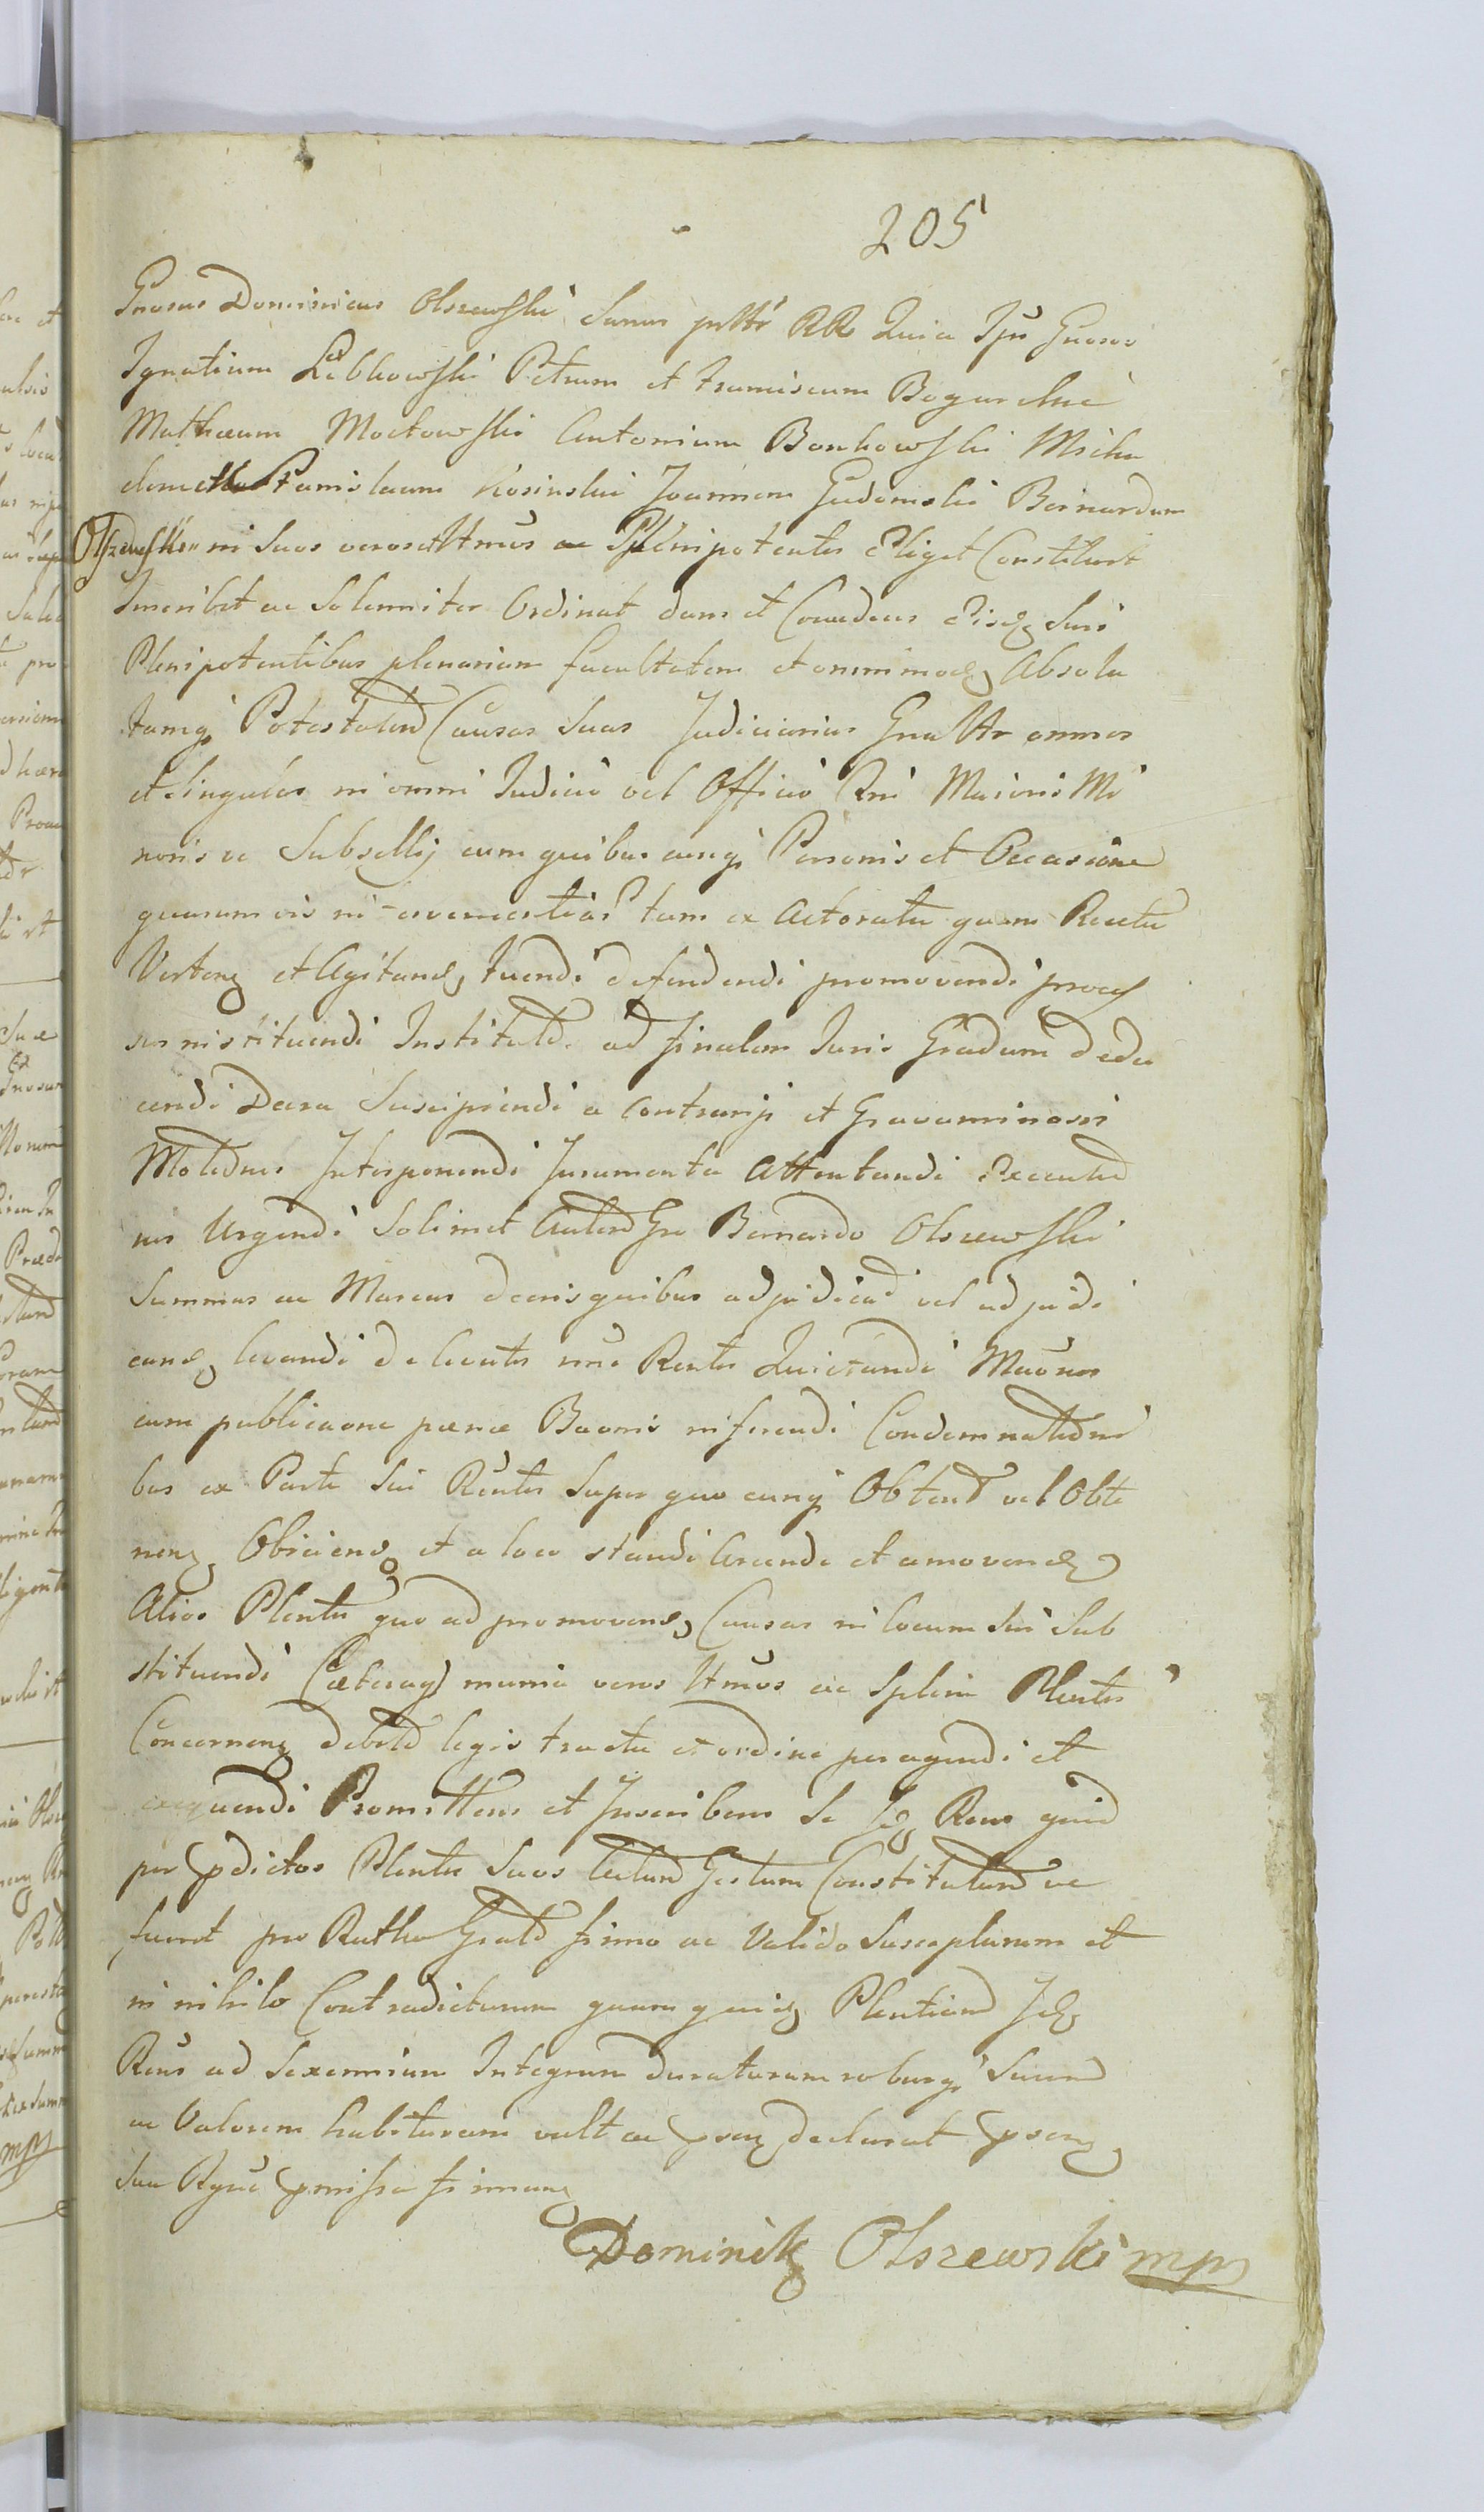 205
Gnosus Dominicus Olszewski Sanus RR Quia Gnosos
Ignatium Lebkowski Petrum et Franciscum Bogurckie
Mathæum Moctowski Antonium Bonkowski Micha
elem et Stanislaum Kosinski Joannem Gudomski Bernardum
Olszewski in Suos veros Plenipotentes Eligit Constituit
Inscribit ac Solemniter Ordinat dans et Concedens Eisq Suis
Plenipotentibus plenariam facultatem et omnimodq Absolu
tamq Potestatem Causas Suas Judiciarias Gnaltr omnes
et Singulas in omni Judicio vel Officio Rni Maioris Mi
noris ve Subsellij cum quibus cunq Personis et Occasione
quarumvis tam ex Actoratu quam Reatu
Verten et Agitand tuendi defendendi promovendi process
sus instituendi Institut ad finalem Juris Gradum dedu
cendi Decra Suscipiendi a Contrarijs et Gravaminosis
Motiones Interponendi Juramenta Attentandi Executio
nes Urgendi Bernardo Olszewski
Summas ac Marcas Decris quibus adjudicat vel adjudi
cand levandi de levatis Quietandi
cum publicaone pænæ Baonis inferendi Condemnationi
bus ex Parte Sui Rentis Super quo cunq Obtent vel Obti
nen Obiiciend et a loco standi Arcendi et amovend
Alios Plentes quo ad promovend Causas in locum Sui Sub
stituendi Cæteraq munia veros ac Plentes
Concernen debito legis tractu et ordine peragendi et
exequendi Promittens et Inscribens Se Idq Rens quid
per pdictos Plentes Suos Actum Gestum Constitutum ve
fuerit pro Ratho Grato firmo ac Valido Suscepturum et
in nihilo Contradicturum quam quid Plentiam Idq
Rens ad Sexennium Integrum duraturam roburq Suum
ac Valorem habituram vult ac psen declarat psen
Sua pmissa firman
Dominik Olszewski mp